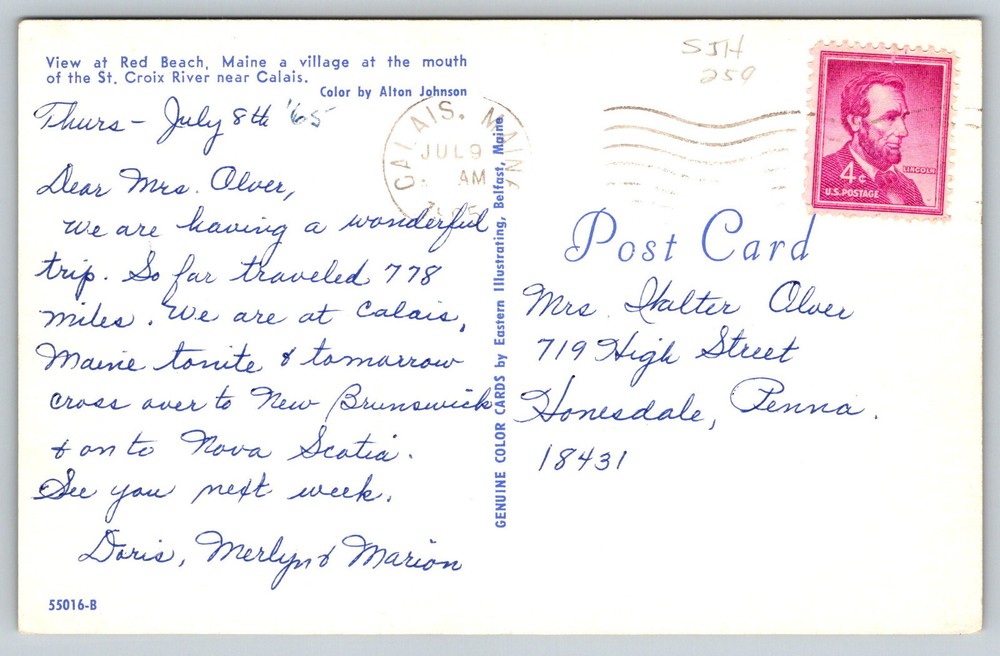 View at Red Beach, Maine a village at the mouth
of the St. Croix River near Calais.
Color by Alton Johnson
Thurs - July 8th '65
Dear Mrs. Olver,
We are having a wonderful
trip. So far traveled 778
miles. We are at Calais,
Maine tonite & tomorrow
cross over to New Brunswick
& on to Nova Scotia.
See you next week.
Doris, Merlyn & Marion
55016-B
GENUINE COLOR CARDS by Eastern Illustrating, Belfast, Maine
CALAIS, MAINE
JUL 9
AM
SJH
250
4¢
LINCOLN
U.S. POSTAGE
Post Card
Mrs. Walter Olver
719 High Street
Honesdale, Penna.
18431